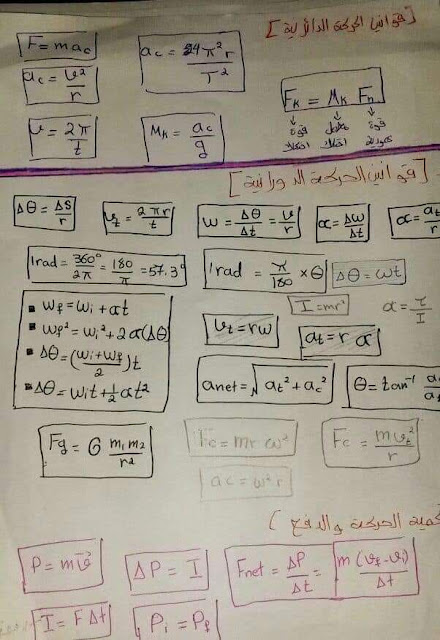 [قوانين الحركة الدائرية]
F = mac
ac = 4π²r / T²
ac = v² / r
FK = MK Fn
قوة معامل قوة
احتكاك احتكاك عمودية
v = 2π / t
MK = ac / g
[قوانين الحركة الدورانية]
Δθ = ΔS / r
vt = 2πr / t
ω = Δθ / Δt = v / r
α = Δω / Δt
α = at / r
1rad = 360° / 2π = 180 / π = 57.3°
1rad = π / 180 × θ
Δθ = ωt
I = mr²
α = τ / I
▪ ωf = ωi + αt
▪ ωf² = ωi² + 2α(Δθ)
▪ Δθ = (ωi + ωf / 2)t
▪ Δθ = ωit + 1/2 αt²
vt = rω
at = r α
anet = √at² + ac²
θ = tan⁻¹ ac / at
Fg = G m1 m2 / r²
Fc = mr ω²
Fc = m vt² / r
ac = ω²r
كمية الحركة والدفع ]
P = mv
ΔP = I
Fnet = ΔP / Δt = m (vf - vi) / Δt
I = F Δt
Pi = Pf